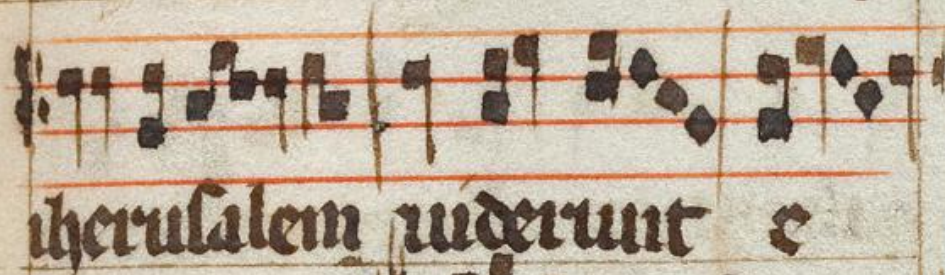 iherusalem uiderunt e